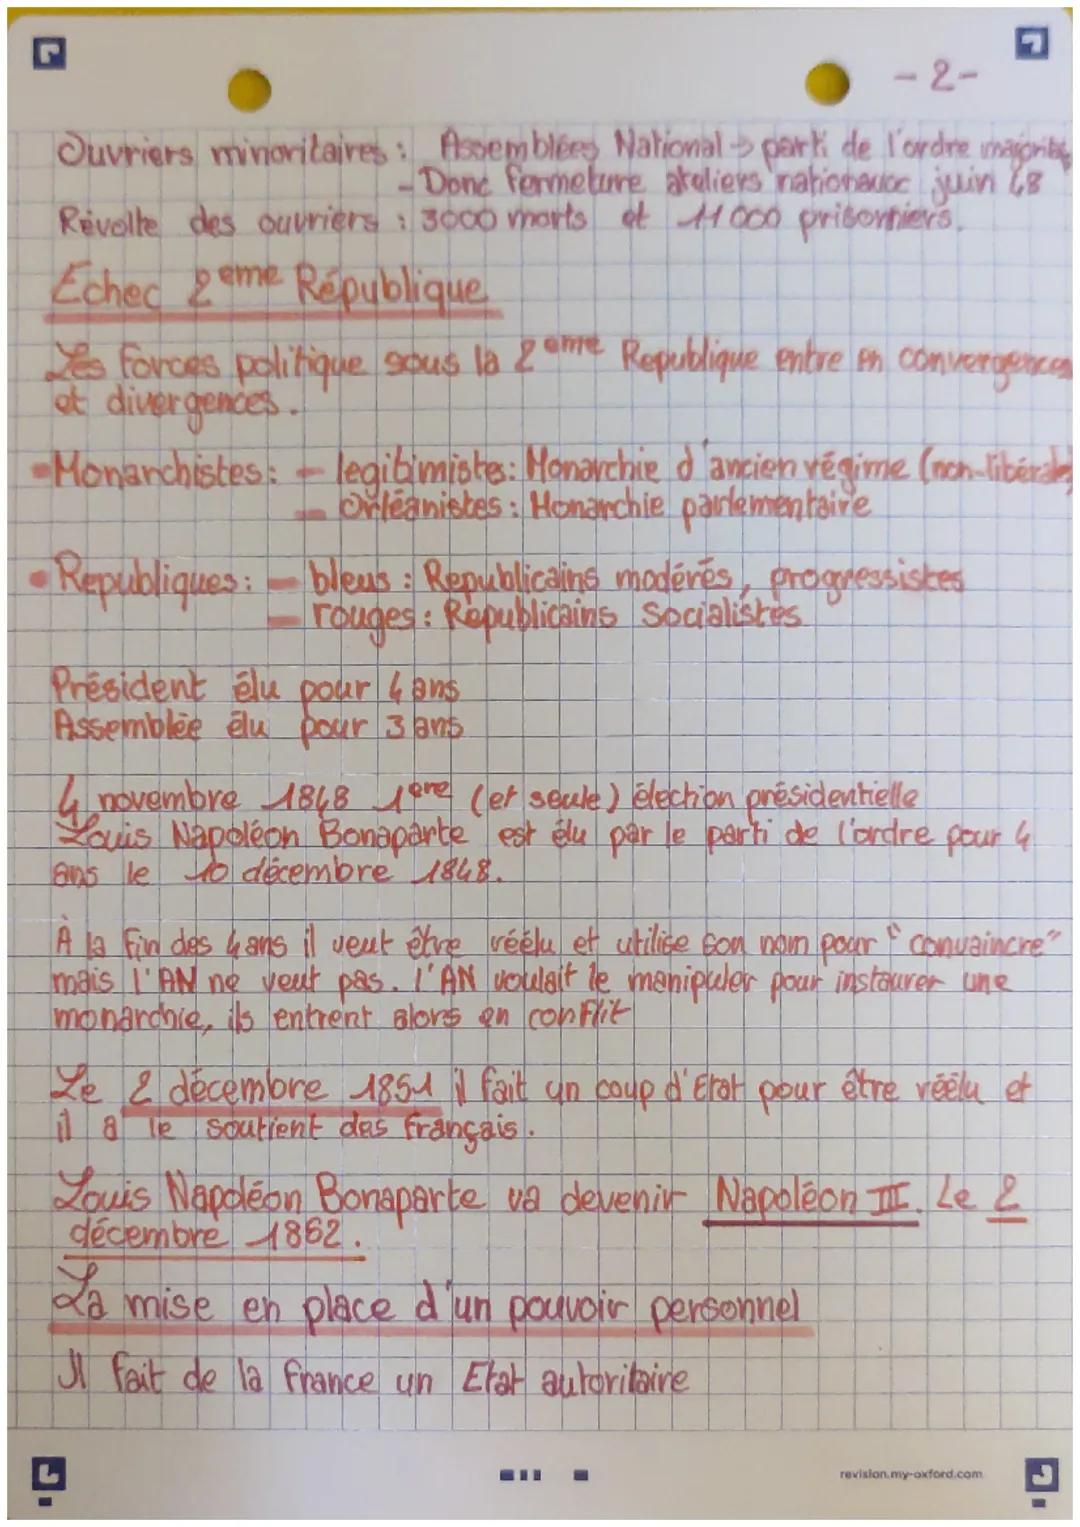 - 2 -
Ouvriers minoritaires : Assemblées National → parti de l'ordre majorité
- Donc fermeture ateliers nationaux juin 48
Révolte des ouvriers : 3000 morts et 11 000 prisonniers.
Echec 2eme République
Les forces politique sous la 2eme Republique entre en convergences
et divergences.
• Monarchistes : - legitimistes : Monarchie d'ancien régime (non-libérale)
- Orléanistes : Monarchie parlementaire
• Republiques : - bleus : Republicains modérés, progressistes
- rouges : Républicains socialistes
Président élu pour 4 ans
Assemblée élu pour 3 ans
4 novembre 1848 1ere (et seule) élection présidentielle
Louis Napoléon Bonaparte est élu par le parti de l'ordre pour 4
ans le 10 décembre 1848.
À la fin des 4 ans il veut être réélu et utilise son nom pour "convaincre"
mais l'AN ne veut pas. l'AN voulait le manipuler pour instaurer une
monarchie, ils entrent alors en conflit
Le 2 décembre 1851 il fait un coup d'Etat pour être réélu et
il a le soutient des français.
Louis Napoléon Bonaparte va devenir Napoléon III. Le 2
décembre 1852.
La mise en place d'un pouvoir personnel
Il fait de la france un Etat autoritaire
revision.my-oxford.com